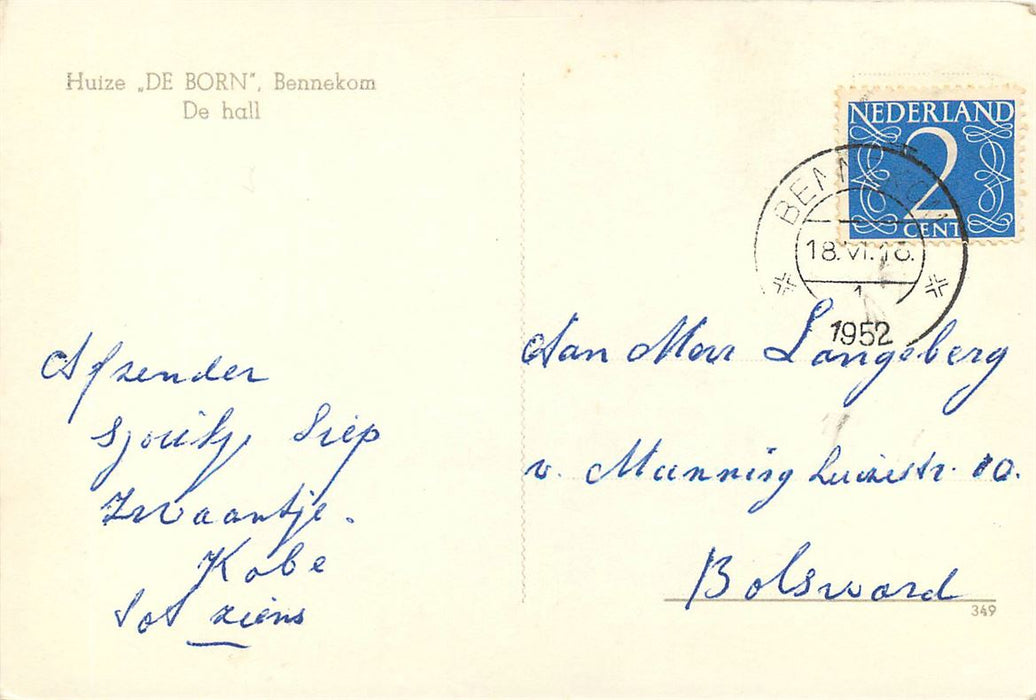 Huize „DE BORN", Bennekom
De hall
NEDERLAND
2
CENT
BENNEKOM
18.VI.18.
1
1952
Afzender
Sjoukje Siep
Zwaantje.
Kobe
tot ziens
Aan Mevr Langeberg
v. 10.
Bolsward
349